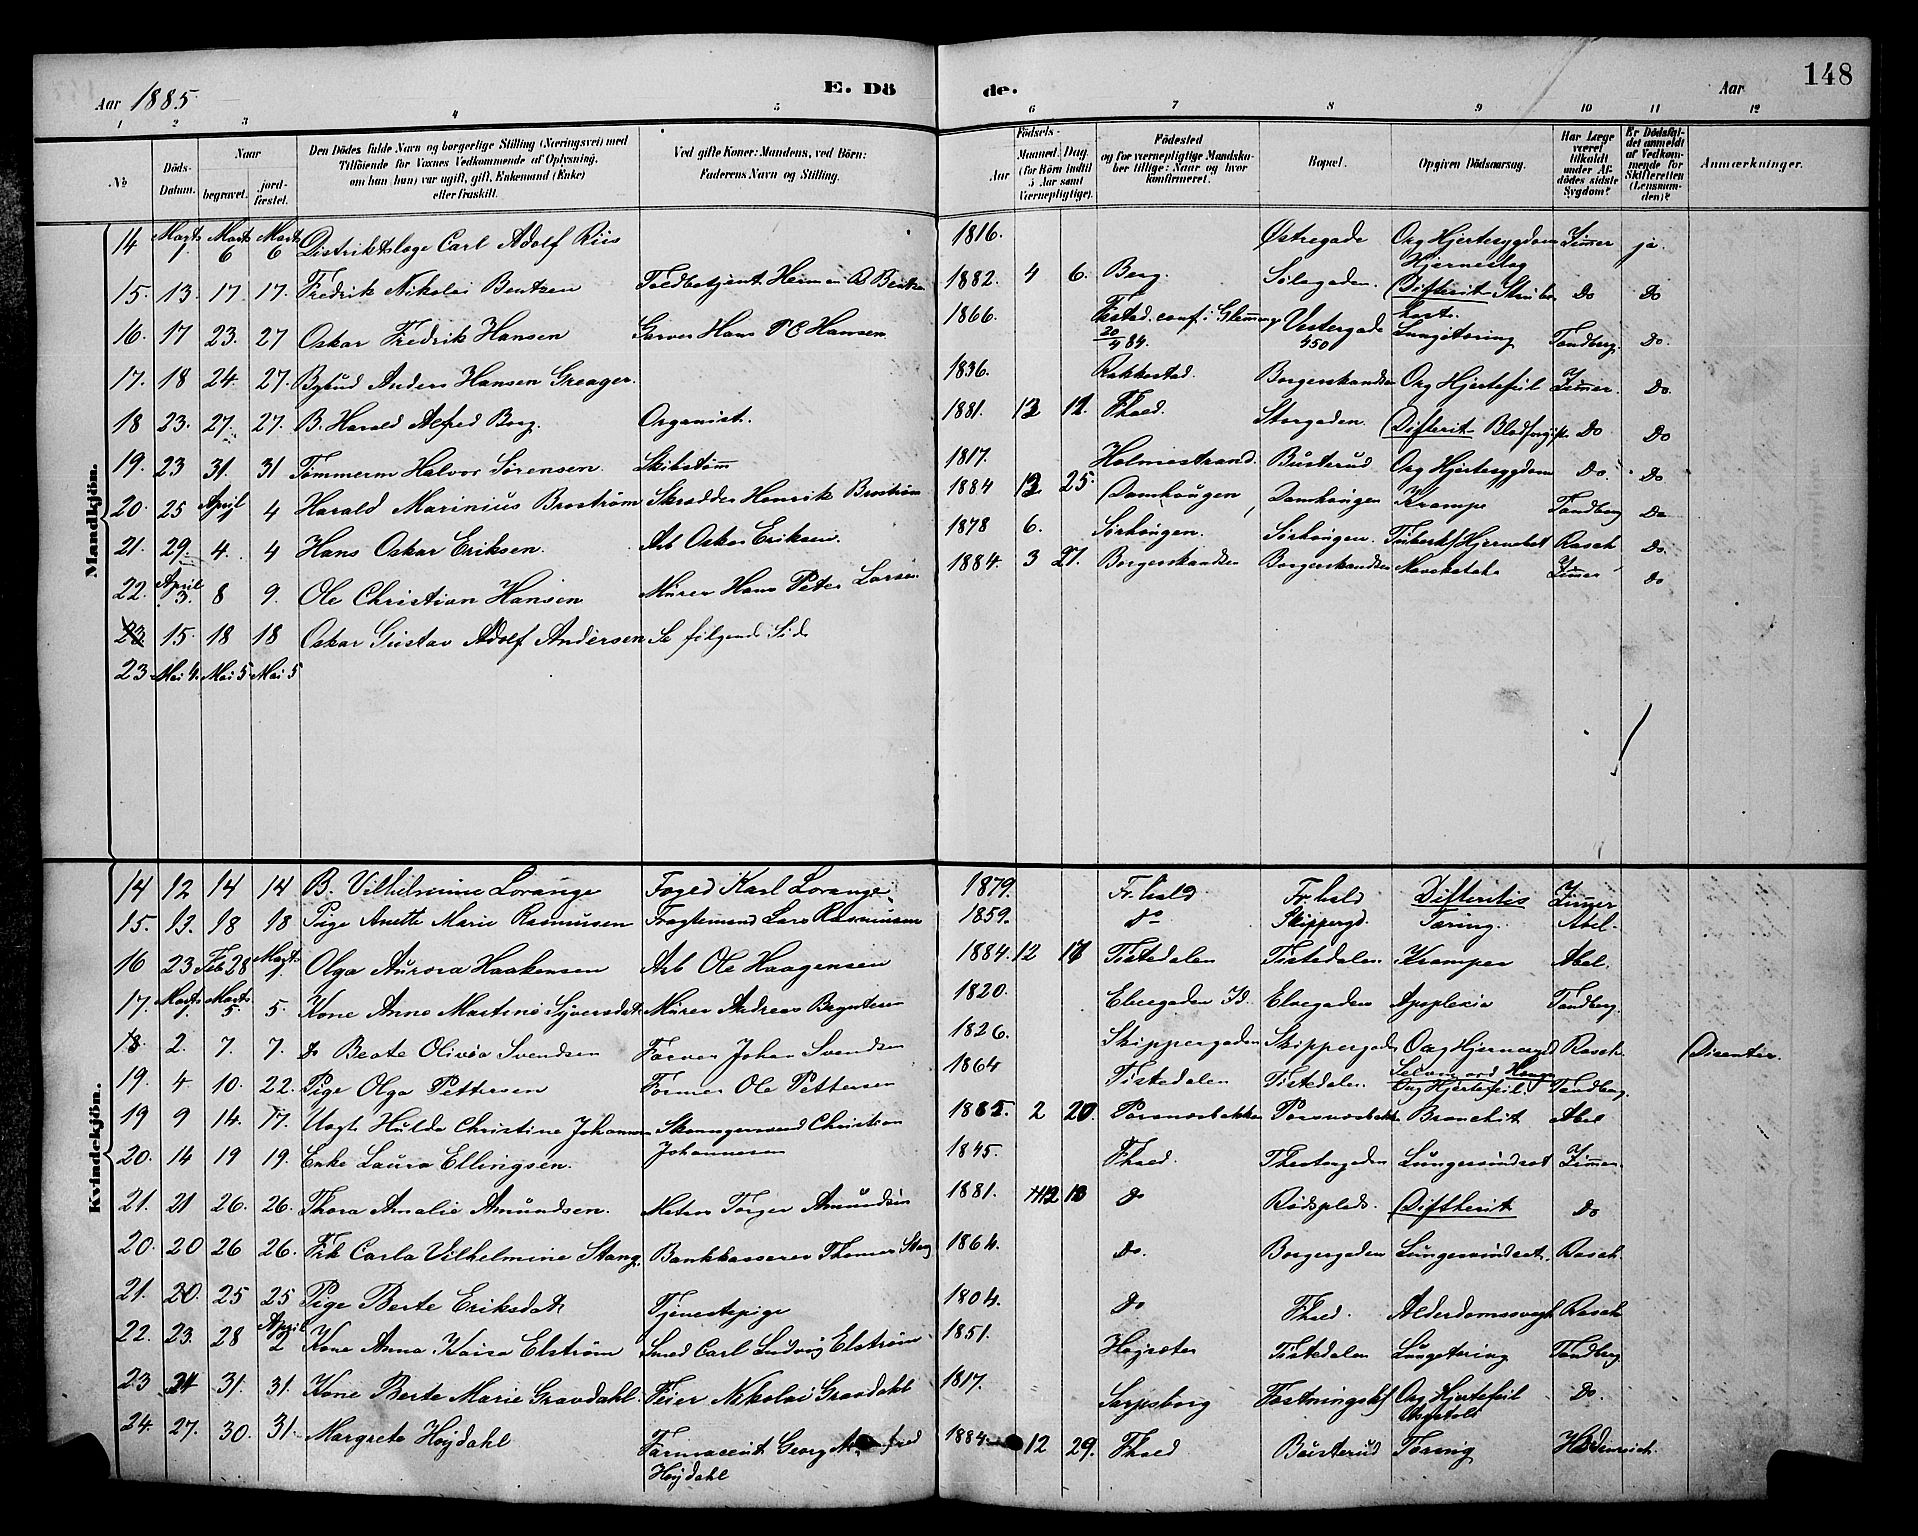 Aar 1885. E. Dö de. Aar 148
1 2 3 4 5 6 7 8 9 10 11 12
No Döds-Datum. Naar begravet. jord-fæstet. Den Dödes fulde Navn og borgerlige Stilling (Næringsvei) med Tilföiende for Voxnes Vedkommende af Oplysning, om han (hun) var ugift, gift, Enkemand (Enke) eller fraskilt. Ved gifte Koner: Mandens, ved Börn: Faderens Navn og Stilling. Födsels- Aar Maaned. Dag. (for Börn indtil 5 Aar samt Værnepligtige). Födested og for værnepligtige Mandskaber tillige: Naar og hvor konfirmeret. Bopæl. Opgiven Dödsaarsag. Har Læge været tilkaldt under Afdödes sidste Sygdom? Er Dödsfaldet anmeldt af Vedkommende for Skifteretten (Lensmanden)? Anmærkninger.
Mandkjön.
14 Marts 1. Marts 6 Marts 6 Distriktslæge Carl Adolf Riis 1816. Østregade Org Hjertesygdom Hjerneslag Zimmer ja.
15. 13. 17 17. Fredrik Nikolai Bentzen Toldbetjent Herman B Bentzen 1882. 4 6. Berg. Sølegaden. Difterit Strube Do Do
16. 17 23. 27 Oskar Fredrik Hansen Garver Hans P C Hansen 1866. Fstad. conf. i Glemminge 20/4 84. Vestergade 450 Lungetæring Tandberg. Do
17. 18 24. 27. Bybud Anders Hansen Greager. 1836. Rakkestad. Borgerskandsen Org Hjertefeil Zimmer. Do.
18 23. 27. 27. B. Harald Alfred Borg. Organist. 1881. 12 12. Fhald. Storgaden. Difterit Blodforgift Do Do
19. 23 31. 31 Tømmerm Halvor Sørensen. Skibstøm 1817. Holmestrand. Busterud Org Hjertesygdom Do. Do
20. 25 April 4 Harald Marinius Brostrøm Skrædder Henrik Brostrøm 1884 12 25. Damhougen Damhougen Krampe Tandberg Do
21. 29. 4. 4 Hans Oskar Eriksen. Arb Oskar Eriksen. 1878 6. Sørhougen. Sørhougen. Tuberk Hjernebet Rasch Do.
22. April 3. 8 9. Ole Christian Hansen Murer Hans Peter Larsen 1884. 3 27. Borgerskandsen Borgerskandsen Mavekatahr Zimmer Do
23 15. 18 18 Oskar Gustav Adolf Andersen Se følgende Side
23. Mai 4. Mai 5 Mai 5
Kvindekjön.
14 12 14 14. B. Vilhelmine Lorange Foged Karl Lorange. 1879. Fr. hald Fr. hald Difteritis Zimmer
15. 13. 18 18 Pige Anette Marie Rasmusen Fragtemand Lars Rasmusen 1859. do Skippergd. Tæring. Abel.
16 23. Feb 28 Marts 1 Olga Aurora Haakensen Arb Ole Haagensen 1884. 12 17 Tistedalen Tistedalen. Kramper Abel.
17. Marts 1. Marts 5. 5. Kone Anne Martine Syversdat. Murer Andreas Bryntesen 1820. Elvegaden Id. Elvegaden Apoplexia Tandberg.
18 2. 7. 7. Do Beate Olivia Svendsen Farver Johan Svendsen 1826. Skippergaden Skippergaden Org Hjernesygd Rasch Disenter.
19. 4 10. 22. Pige Olga Pettersen Former Ole Pettersen 1864 Tistedalen Tistedalen. Selvmord Hængn Org Hjertefeil. Tandberg.
19 9 14. 17. Uægt Hulda Christine Johannesen Skomagersvend Christian Johannesen 1885. 2 20. Porsnæsbakken Porsnæsbakken Bronchit Abel
20. 14 19 19. Enke Laura Ellingsen. 1845. Fhald. Theatergaden Lungesvindsot Zimmer.
21. 21 26. 26. Thora Amalie Amundsen. Maler Torger Amundsen 1881. 12 13 do Rødsplads. Diftherit Do
20. 20 26 26. Frk Carla Vilhelmine Stang. Bankkasserer Thomas Stang 1864. Do. Borgergaden Lungesvindsot. Rasch
21. 20. 25 25 Pige Berte Eriksdat. Tjenestepige 1804. Do Fhald. Alderdomssvagh Rasch
22. 23. 28 April 2 Kone Anna Kaisa Elstrøm Smed Carl Ludvig Elstrøm 1851. Høgsæter Tistedalen Lungetæring Tandberg
23 24 31. 31. Kone Berte Marie Gravdahl. Feier Nikolai Gravdahl 1817. Sarpsborg Fæstningsk Org Hjertefeil Do.
24. 27. 30. 31. Margrete Høydahl Farmaceut Georg Høydahl 1884. 12 29. Fhald Busterud Tæring